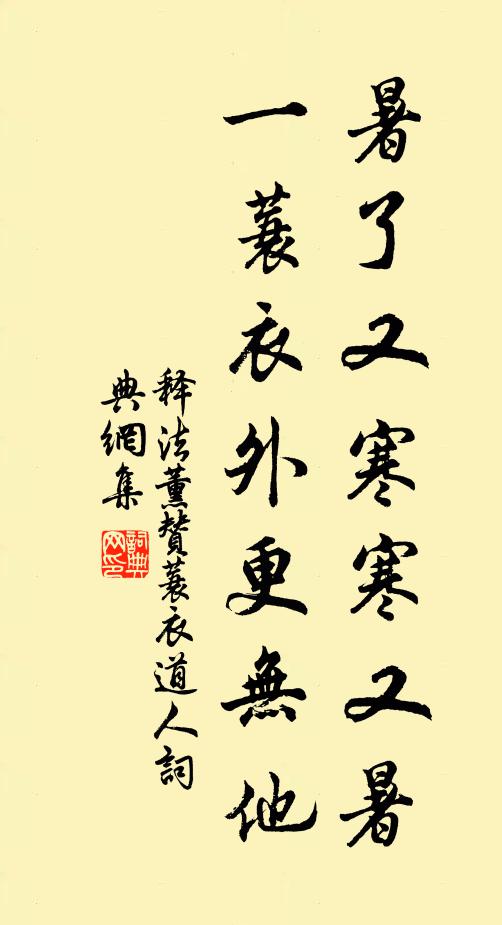 暑了又寒寒又暑
一蓑衣外更無他
释法薰贊蓑衣道人詞
典網集
詞典
网印